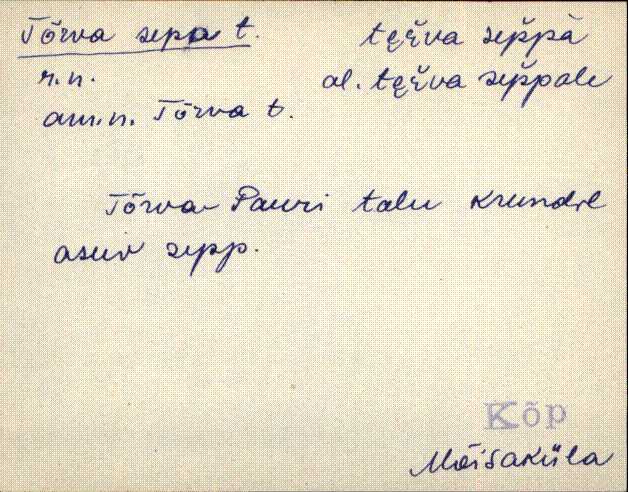 Tõrva sepa t. tęr̆va sep̆pà
r.n. al. tęr̆va sep̆pale
am.n. Tõrva t.
Tõrva-Pauri talu krundil
asuv sepp.
Kõp
Mõisaküla